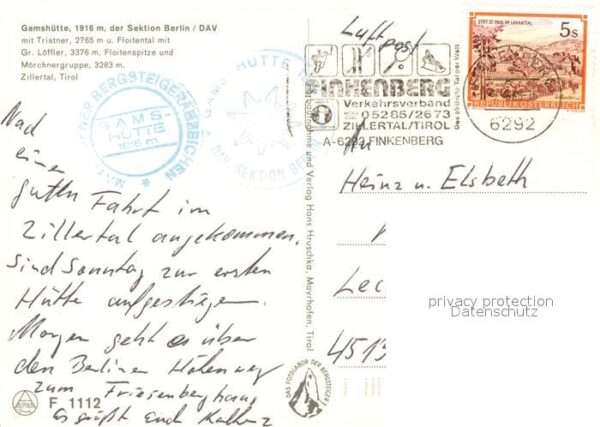 Gamshütte, 1916 m, der Sektion Berlin / DAV
mit Tristner, 2765 m u. Floitental mit
Gr. Löffler, 3376 m, Floitenspitze und
Mörchnergruppe, 3283 m.
Zillertal, Tirol
BERGSTEIGERABZEICHEN
GAMS-
HÜTTE
1916 m
GAMS HÜTTE
DAV SEKTION BERLIN
Nach
einer
guten Fahrt im
Zillertal angekommen.
Sind Sonntag zur ersten
Hütte aufgestiegen.
Morgen geht es über
den Berliner Höhenweg
zum Friesenberghaus
Es grüßt euch
F 1112
und Verlag Hans Hruschka, Mayrhofen, Tirol
DAS FOTOLABOR DER BERGSTEIGER
Luftpost
FINKENBERG
Verkehrsverband
☎ 05285/2673
ZILLERTAL/TIROL
A-6292 FINKENBERG
STIFT ST. PAUL IM LAVANTTAL
5s
REPUBLIK ÖSTERREICH
6292
An
Heinz u. Elsbeth
Lec
4513
privacy protection
Datenschutz